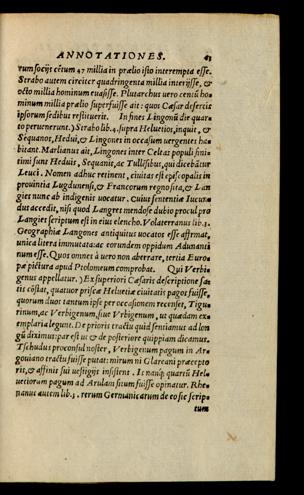 ANNOTATIONES. 63
rum socijs cētum 47 millia in prælio isto interempta esse.
Strabo autem circiter quadringenta millia interijsse, &
octo millia hominum euasisse. Plutarchus uero centū ho
minum millia prælio superfuisse ait: quos Cæsar desertis
ipsorum sedibus restituerit. In fines Lingonū die quar-
to peruenerunt.) Strabo lib.4. supra Heluetios, inquit, &
Sequanos, Hedui, & Lingones in occasum uergentes ha-
bitant. Marlianus ait, Lingones inter Celtas populi fini-
timi sunt Heduis, Sequanis, ac Tullisibus, qui dicebātur
Leuci. Nomen adhuc retinent, ciuitas est episcopalis in
prouintia Lugdunensi, & Francorum regno sita, & Lan
gres nunc ab indigenis uocatur. Cuius sententiæ Iucun
dus accedit, nisi quod Langres mendose dubio procul pro
Langies scriptum est in eius elencho. Volaterranus lib.3.
Geographiæ Langones antiquitus uocatos esse affirmat,
unica litera immutata: ac eorundem oppidum Adunanti
num esse. Quos omneis à uero non aberrare, tertia Euro
pæ pictura apud Ptolomeum comprobat. Qui Verbi-
genus appellatur.) Ex superiori Cæsaris descriptione sa-
tis cōstat, quatuor priscæ Heluetiæ ciuitatis pagos fuisse,
quorum duos tantum ipse per occasionem recenset, Tigu
rinum, ac Verbigenum, siue Vrbigenum, ut quædam ex-
emplaria legunt. De prioris tractu quid sentiamus ad lon
gū diximus: par est ut & de posteriore quippiam dicamus.
Tschudus proconsul noster, Verbigenum pagum in Ar
gouiano tractu fuisse putat: nimirum ni Glareani præcepto
ris, & affinis sui uestigijs insistens. Is nanque quartū Hel-
uetiorum pagum ad Arulam situm fuisse opinatur. Rhe
nanus autem lib.3. rerum Germanicarum de eo sic scrip-
tum